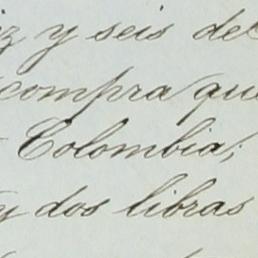 iz y seis del
compra que
Colombia;
y dos libras